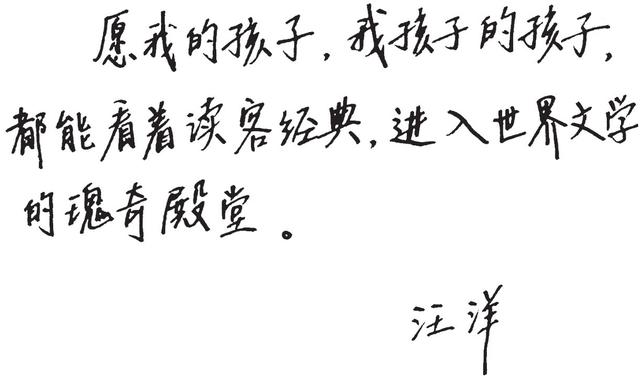 愿我的孩子，我孩子的孩子，
都能看着读客经典，进入世界文学
的瑰奇殿堂。
汪洋